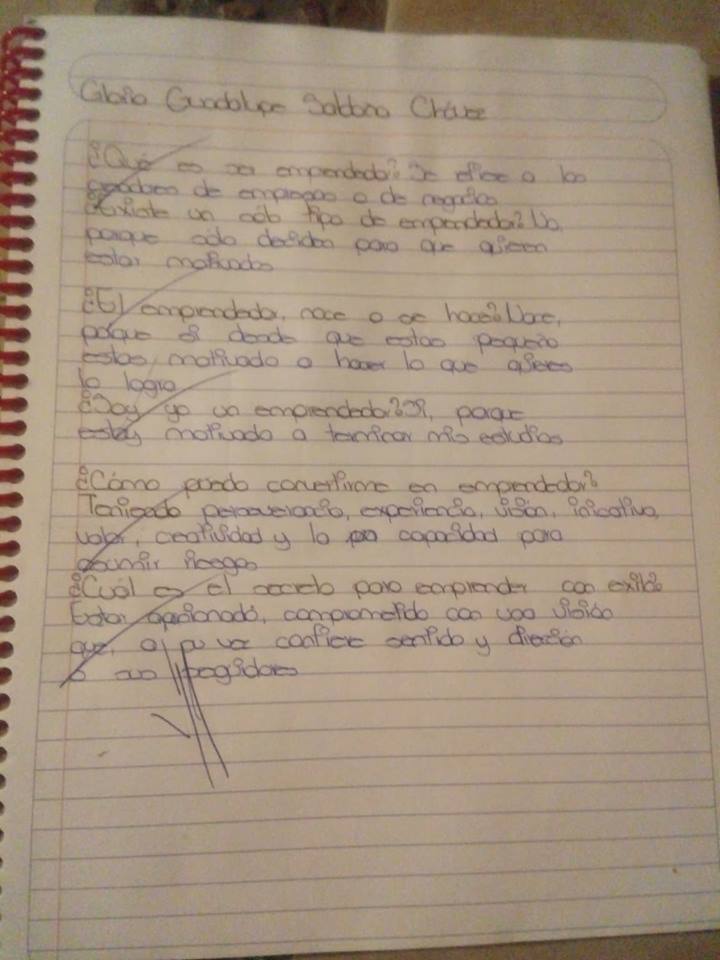 Gloria Guadalupe Saldaña Chávez
¿Qué es ser emprendedor? Se refiere a los
creadores de empresas o de negocios
¿Existe un sólo tipo de emprendedor? No,
porque sólo decides para que quieren
estar motivados
¿El emprendedor, nace o se hace? Nace,
porque si desde que estas pequeño
estas motivado a hacer lo que quieres
lo logra
¿Soy yo un emprendedor? Si, porque
estoy motivado a terminar mis estudios
¿Cómo puedo convertirme en emprendedor?
Teniendo perseverancia, experiencia, visión, inicativa,
valor, creatividad y la capacidad para
asumir riesgos
¿Cuál es el secreto para emprender con exito?
Estar apasionado, comprometido con una visión
que, a su vez confiere sentido y dirección
a sus seguidores